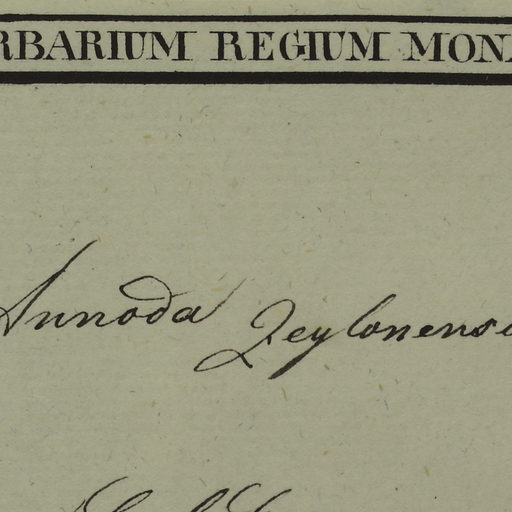 RBARIUM REGIUM MON
Annoda Zeylonens